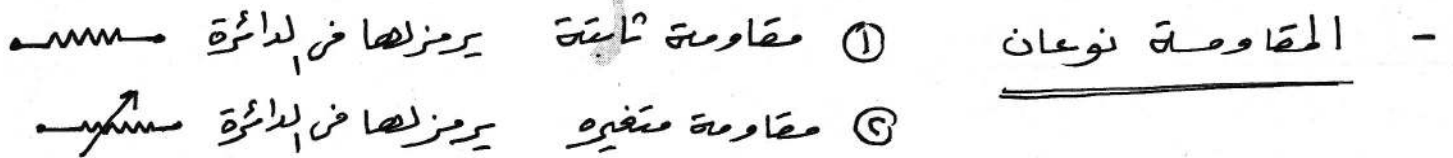 - المقاومة نوعان ① مقاومة ثابتة يرمز لها فى الدائرة
② مقاومة متغيره يرمز لها فى الدائرة